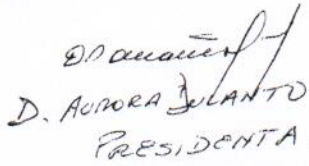 D. AURORA DULANTO
PRESIDENTA